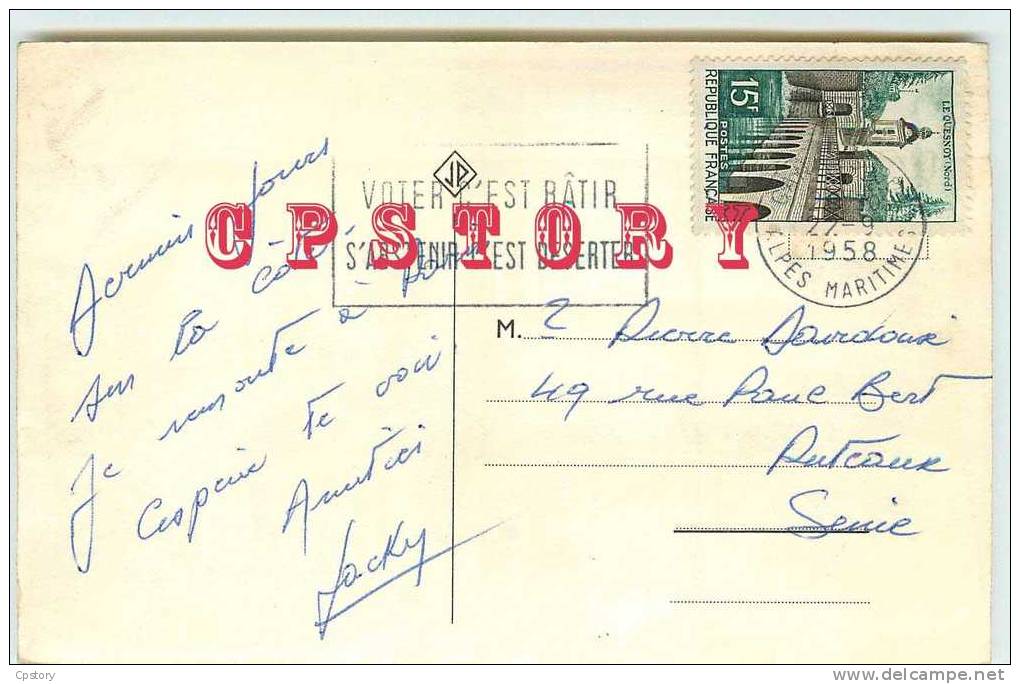 LE QUESNOY (Nord)
15F
POSTES
REPUBLIQUE FRANÇAISE
27-9
1958
ALPES MARITIMES
JD
VOTER C'EST BÂTIR
S'ABSTENIR C'EST DESERTER
CPSTORY
Derniers Jours
sur la côte
Je remonte à
J'espère te voir
Amitiés
Jacky
M. Pierre
49 rue Paul Bert
Puteaux
Seine
Cpstory
delcampe.net